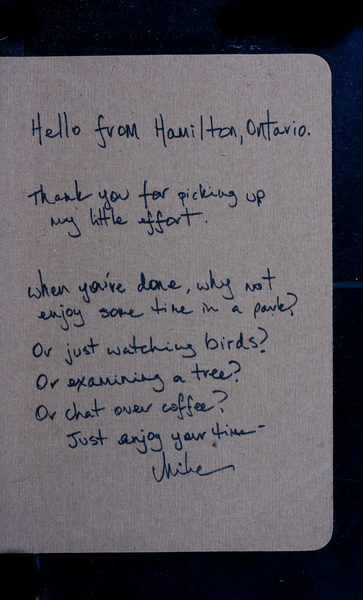 Hello from Hamilton, Ontario.
Thank you for picking up
my little effort.
When you're done, why not
enjoy some time in a park?
Or just watching birds?
Or examining a tree?
Or chat over coffee?
Just enjoy your time-
Mike